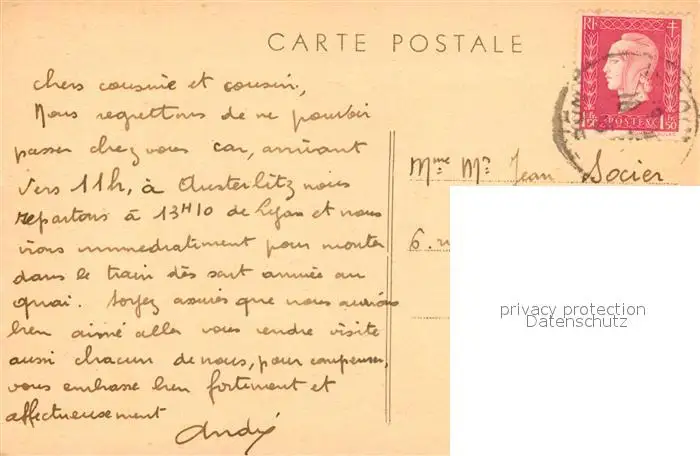 CARTE POSTALE
RF
POSTES
1F 50
chers cousine et cousin,
Nous regrettons de ne pouvoir
passer chez vous car, arrivant
vers 11h, à Austerlitz nous
repartons à 13H10 de Lyon et nous
irons immediatement pour monter
dans le train dès son arrivée au
quai. Soyez assurés que nous aurions
bien aimé aller vous rendre visite
aussi chacun de nous, pour compenser,
vous embrasse bien fortement et
affectueusement
André
Mme Mr Jean Socier
6. ru
privacy protection
Datenschutz